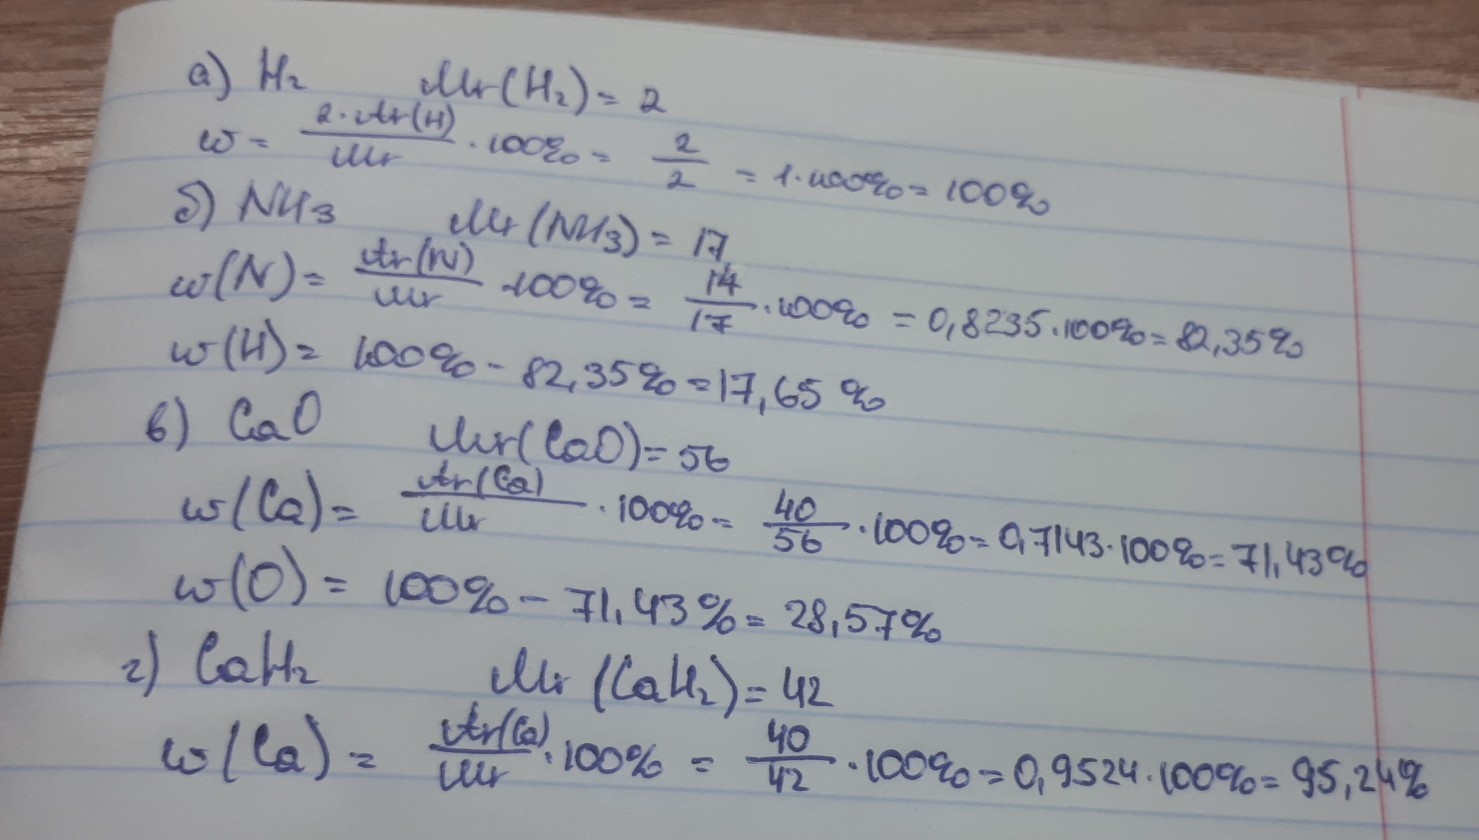 а) H₂ Mr(H₂) = 2
w = 2·Ar(H)/Mr · 100% = 2/2 = 1·100% = 100%
б) NH₃ Mr(NH₃) = 17
w(N) = Ar(N)/Mr · 100% = 14/17 · 100% = 0,8235·100% = 82,35%
w(H) = 100% - 82,35% = 17,65%
в) CaO Mr(CaO) = 56
w(Ca) = Ar(Ca)/Mr · 100% = 40/56 · 100% = 0,7143·100% = 71,43%
w(O) = 100% - 71,43% = 28,57%
г) CaH₂ Mr(CaH₂) = 42
w(Ca) = Ar(Ca)/Mr · 100% = 40/42 · 100% = 0,9524·100% = 95,24%